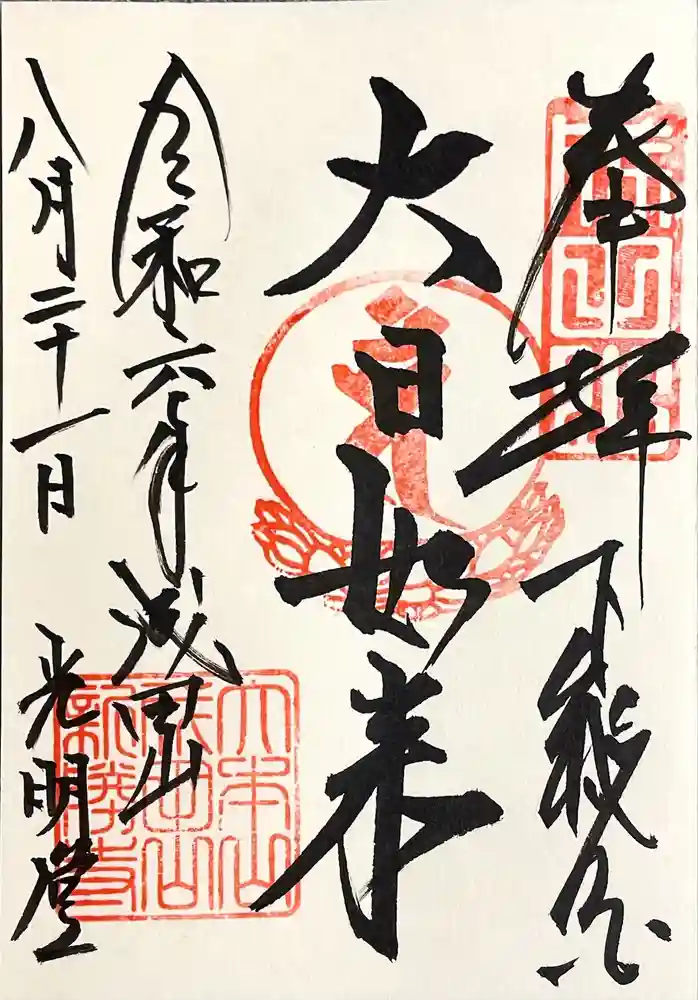 奉拝 下総國
大日如来
令和六年 成田山
八月二十一日 光明堂
大本山
成田山
新勝寺